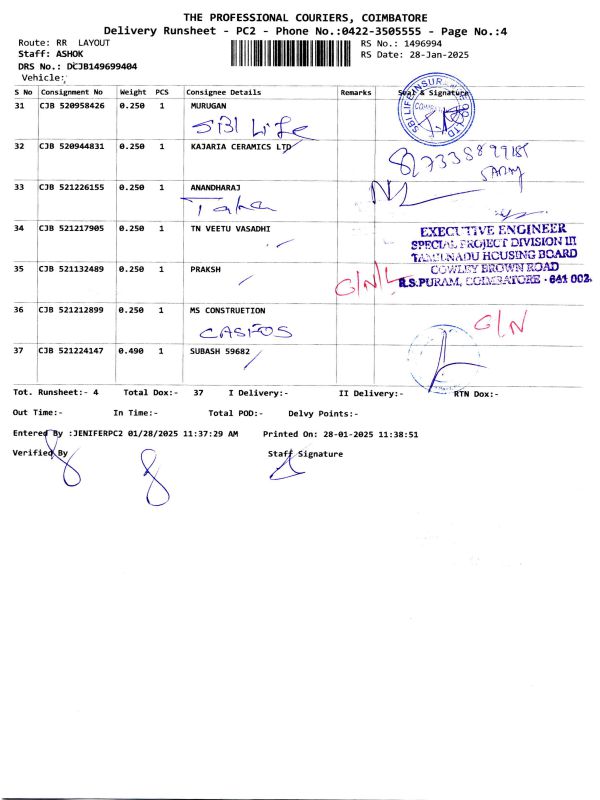 THE PROFESSIONAL COURIERS, COIMBATORE
Delivery Runsheet - PC2 - Phone No.:0422-3505555 - Page No.:4
Route: RR LAYOUT
RS No.: 1496994
Staff: ASHOK
RS Date: 28-Jan-2025
DRS No.: DCJB149699404
Vehicle:
S No Consignment No Weight PCS Consignee Details Remarks Seal & Signature
31 CJB 520958426 0.250 1 MURUGAN
SBI Life
32 CJB 520944831 0.250 1 KAJARIA CERAMICS LTD
33 CJB 521226155 0.250 1 ANANDHARAJ
34 CJB 521217905 0.250 1 TN VEETU VASADHI
EXECUTIVE ENGINEER
SPECIAL PROJECT DIVISION III
TAMILNADU HOUSING BOARD
COWLEY BROWN ROAD
R.S.PURAM, COIMBATORE - 641 002.
35 CJB 521132489 0.250 1 PRAKSH
36 CJB 521212899 0.250 1 MS CONSTRUETION
G/N
37 CJB 521224147 0.490 1 SUBASH 59682
Tot. Runsheet:- 4 Total Dox:- 37 I Delivery:- II Delivery:- RTN Dox:-
Out Time:- In Time:- Total POD:- Delvy Points:-
Entered By :JENIFERPC2 01/28/2025 11:37:29 AM Printed On: 28-01-2025 11:38:51
Verified By Staff Signature